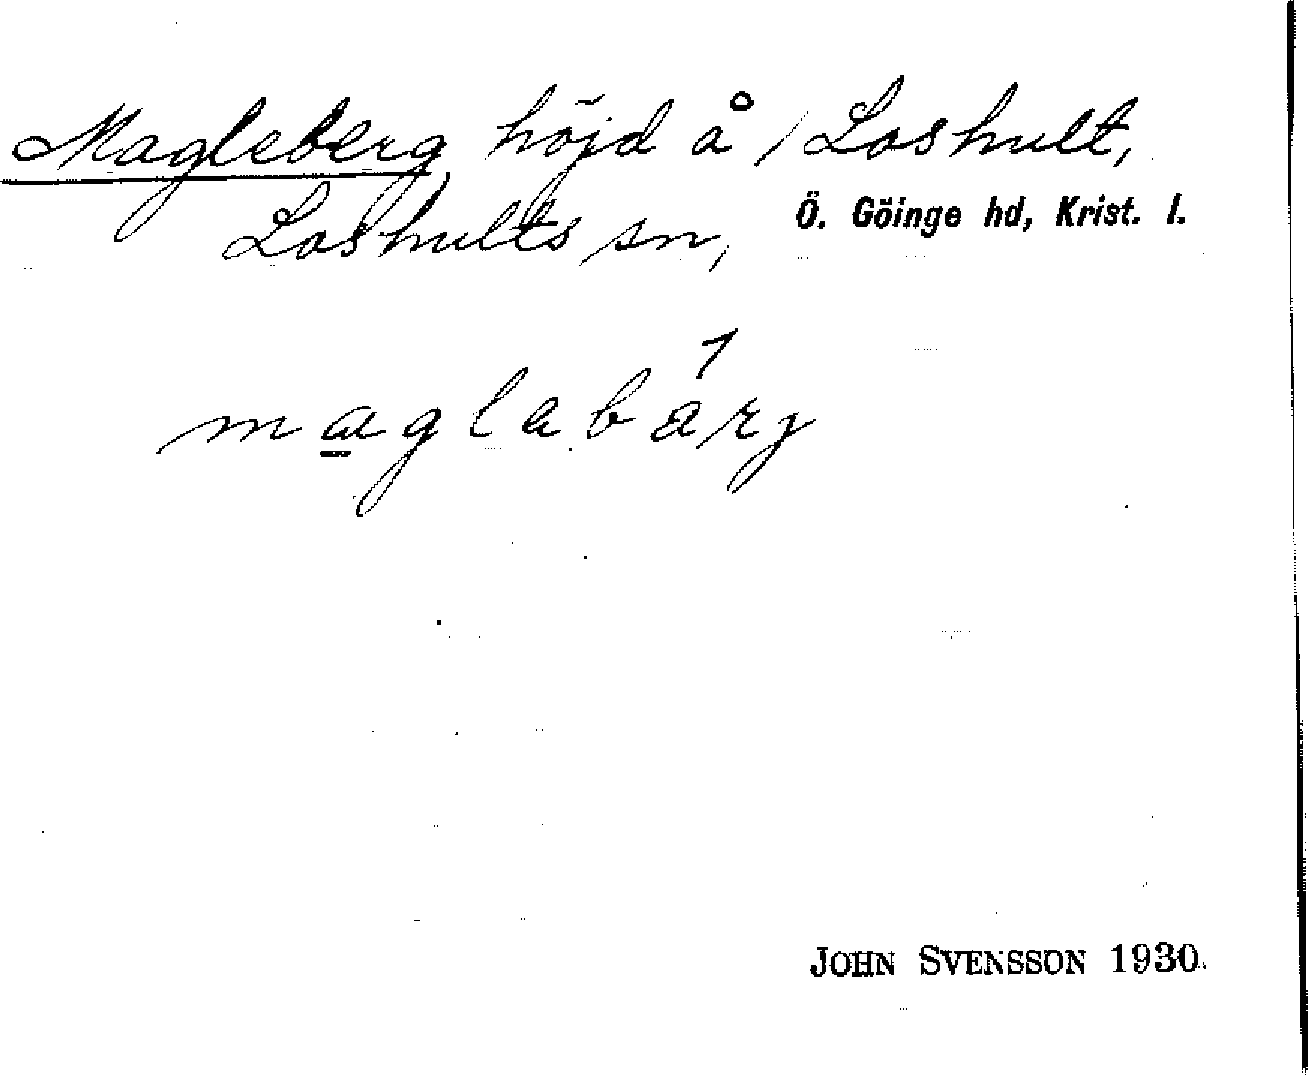 Magleberg höjd å /Loshult,
Loshults sn, Ö. Göinge hd, Krist. l.
maglabárj
JOHN SVENSSON 1930.